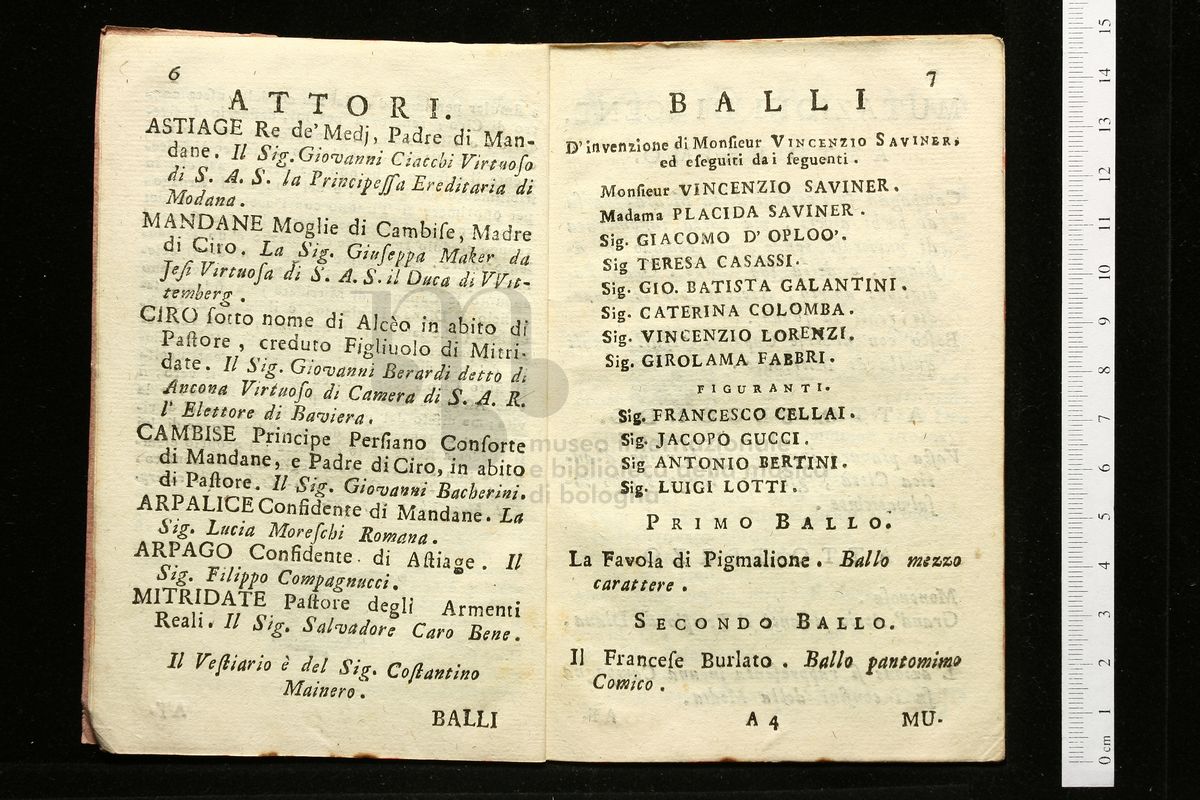 6
ATTORI.
ASTIAGE Re de' Medj, Padre di Man-
dane. Il Sig. Giovanni Ciacchi Virtuoſo
di S. A. S. la Principeſſa Ereditaria di
Modana.
MANDANE Moglie di Cambiſe, Madre
di Ciro. La Sig. Giuſeppa Maker da
Jeſi Virtuoſa di S. A. S. il Duca di VVit-
temberg.
CIRO ſotto nome di Alcèo in abito di
Paſtore, creduto Figliuolo di Mitri-
date. Il Sig. Giovanni Berardi detto di
Ancona Virtuoſo di Camera di S. A. R.
l' Elettore di Baviera.
CAMBISE Principe Perſiano Conſorte
di Mandane, e Padre di Ciro, in abito
di Paſtore. Il Sig. Giovanni Bacherini.
ARPALICE Confidente di Mandane. La
Sig. Lucia Moreſchi Romana.
ARPAGO Confidente di Aſtiage. Il
Sig. Filippo Compagnucci.
MITRIDATE Paſtore degli Armenti
Reali. Il Sig. Salvadore Caro Bene.
Il Veſtiario è del Sig. Coſtantino
Mainero.
BALLI
7
BALLI
D'invenzione di Monſieur VINCENZIO SAVINER,
ed eſeguiti dai ſeguenti.
Monſieur VINCENZIO SAVINER.
Madama PLACIDA SAVINER.
Sig. GIACOMO D' OPLOO'.
Sig TERESA CASASSI.
Sig. GIO. BATISTA GALANTINI.
Sig. CATERINA COLOMBA.
Sig. VINCENZIO LORENZI.
Sig. GIROLAMA FABBRI.
FIGURANTI.
Sig. FRANCESCO CELLAI.
Sig. JACOPO GUCCI.
Sig ANTONIO BERTINI.
Sig. LUIGI LOTTI.
PRIMO BALLO.
La Favola di Pigmalione. Ballo mezzo
carattere.
SECONDO BALLO.
Il Franceſe Burlato. Ballo pantomimo
Comico.
A 4 MU-
museo internazionale
e biblioteca della musica
di bologna
0 cm 1 2 3 4 5 6 7 8 9 10 11 12 13 14 15